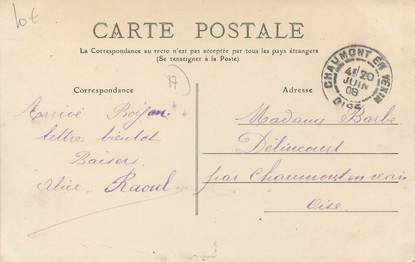 10€
CARTE POSTALE
La Correspondance au recto n'est pas acceptée par tous les pays étrangers
(Se renseigner à la Poste)
Correspondance
Adresse
17
CHAUMONT EN VEXIN
4E 20
JUIN
08
OISE
Arrivé
lettre bientôt
Baisers
Alice Raoul
Madame Barbe
Délincourt
par Chaumont en vexin
Oise